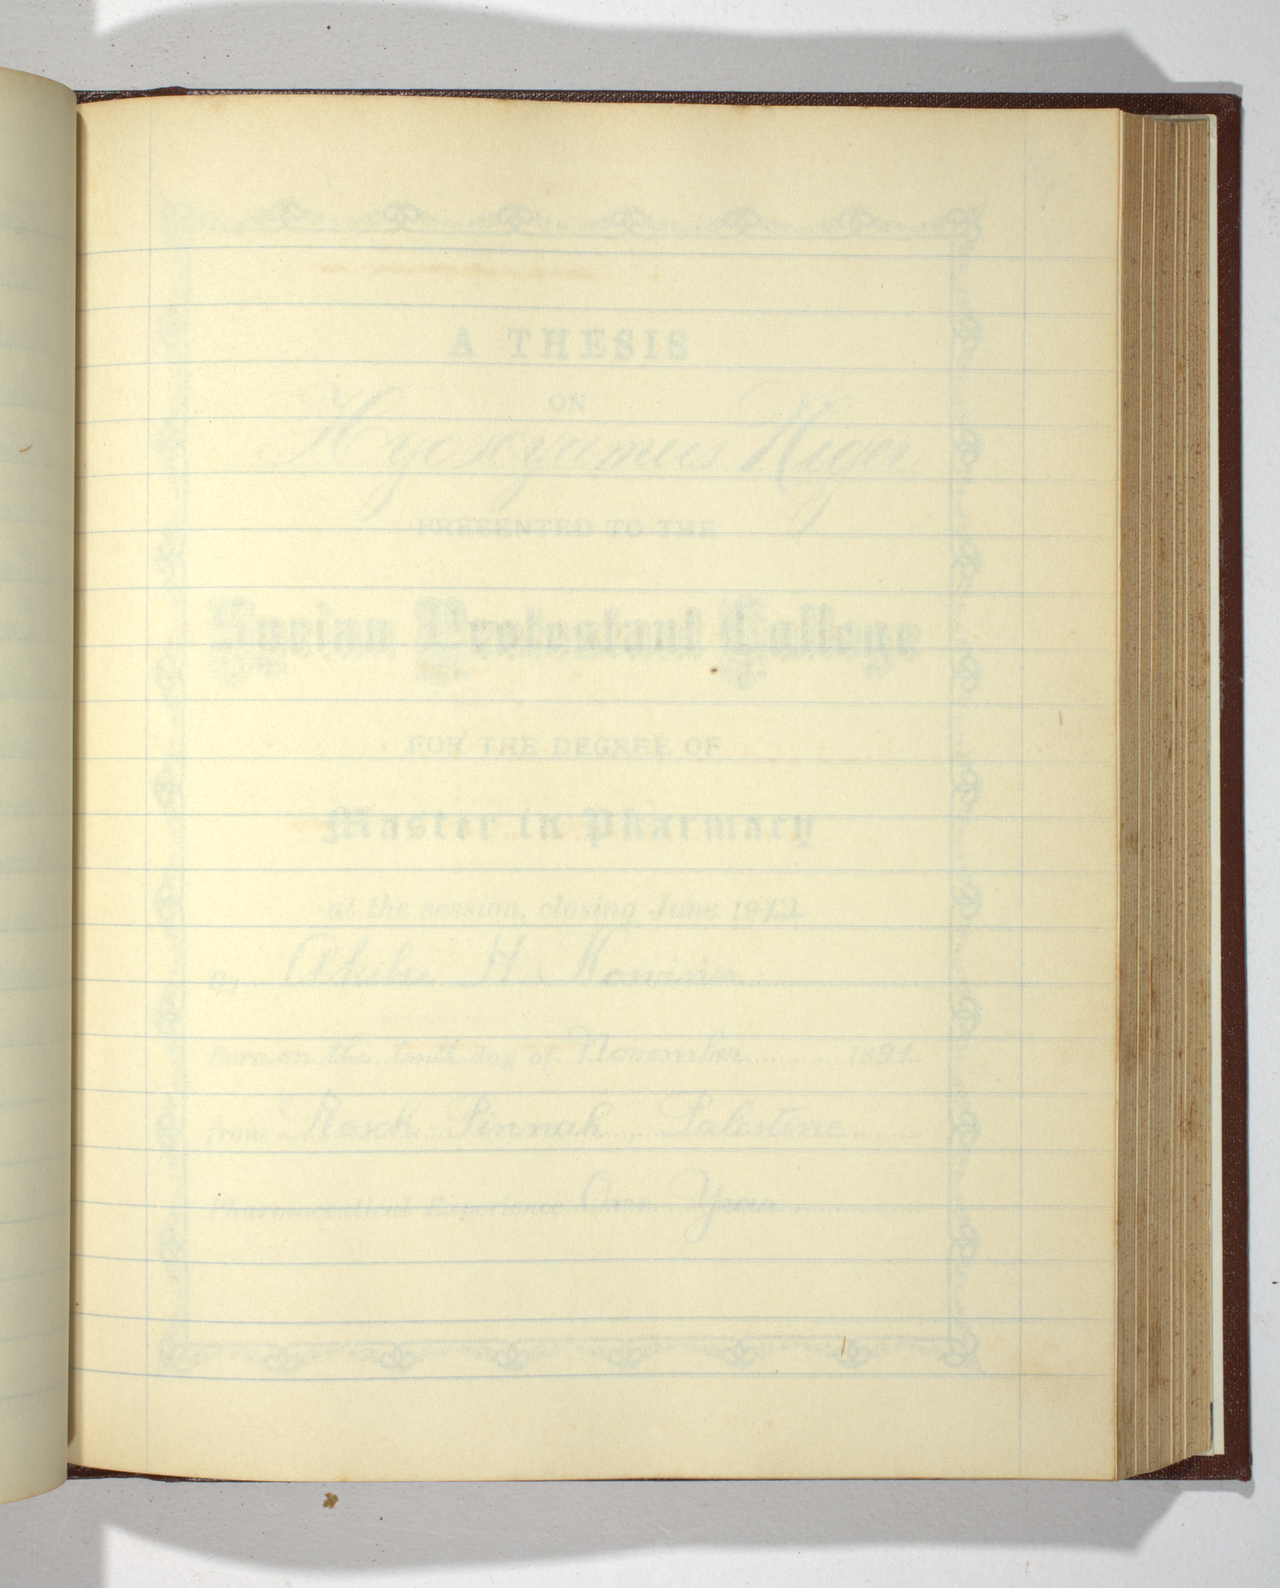 A THESIS
ON
Hyoscyamus Niger
PRESENTED TO THE
Syrian Protestant College
FOR THE DEGREE OF
Master in Pharmacy
at the session, closing June 1912
By H.
Born on the tenth day of November 1891
from Rosch Pinnah, Palestine
Pharmaceutical Experience One Year